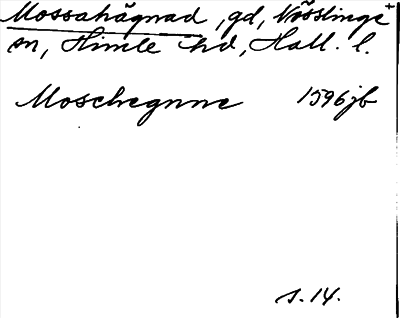 Mossahägnad, gd, Nösslinge +
sn, Himle hd, Hall. l.
Moschegnne 1596 jb
s. 14.